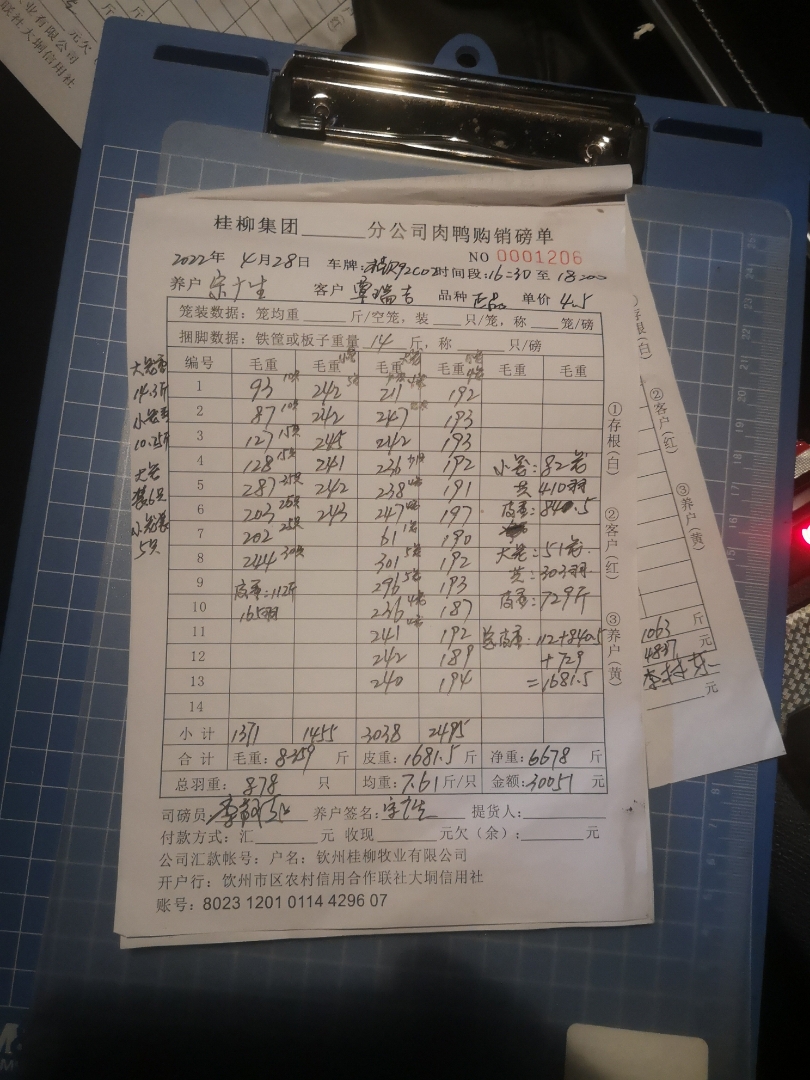 桂柳集团______分公司肉鸭购销磅单
NO 0001206
2022年 4月28日 车牌: 时间段:16:30 至 18:00
养户 宗广生 客户 覃瑞吉 品种 正品 单价 4.5
笼装数据：笼均重______斤/空笼，装___只/笼，称___笼/磅
捆脚数据：铁筐或板子重量 14 斤，称______只/磅
编号 毛重 毛重 毛重 毛重 毛重 毛重
1 93 242 211 192
2 87 242 247 193
3 127 245 242 193
4 128 241 236 192 小笼:82笼
5 287 242 238 191 共410羽
6 203 243 247 197 皮重:840.5
7 202 61 190
8 244 301 192 大笼:51笼
9 皮重:112斤 296 193 共:303羽
10 165羽 236 187 皮重:729斤
11 241 192 总皮重:112+840.5
12 242 189 +729
13 240 194 =1681.5
14
小计 1371 1455 3038 2495
合计 毛重:8359 斤 皮重:1681.5 斤 净重:6678 斤
总羽重: 878 只 均重:7.61斤/只 金额:30051 元
司磅员: 养户签名:宗广生 提货人:
付款方式：汇______元 收现______元欠（余）:______元
公司汇款帐号：户名：钦州桂柳牧业有限公司
开户行：钦州市区农村信用合作联社大垌信用社
账号：8023 1201 0114 4296 07
大笼重
14.3斤
小笼重
10.25斤
大笼
装6只
小笼装
5只
①存根(白)
②客户(红)
③养户(黄)
存根(白)
②客户(红)
③养户(黄)
1063 斤
4837 元
元
业有限公司
联社大垌信用社
元欠
斤